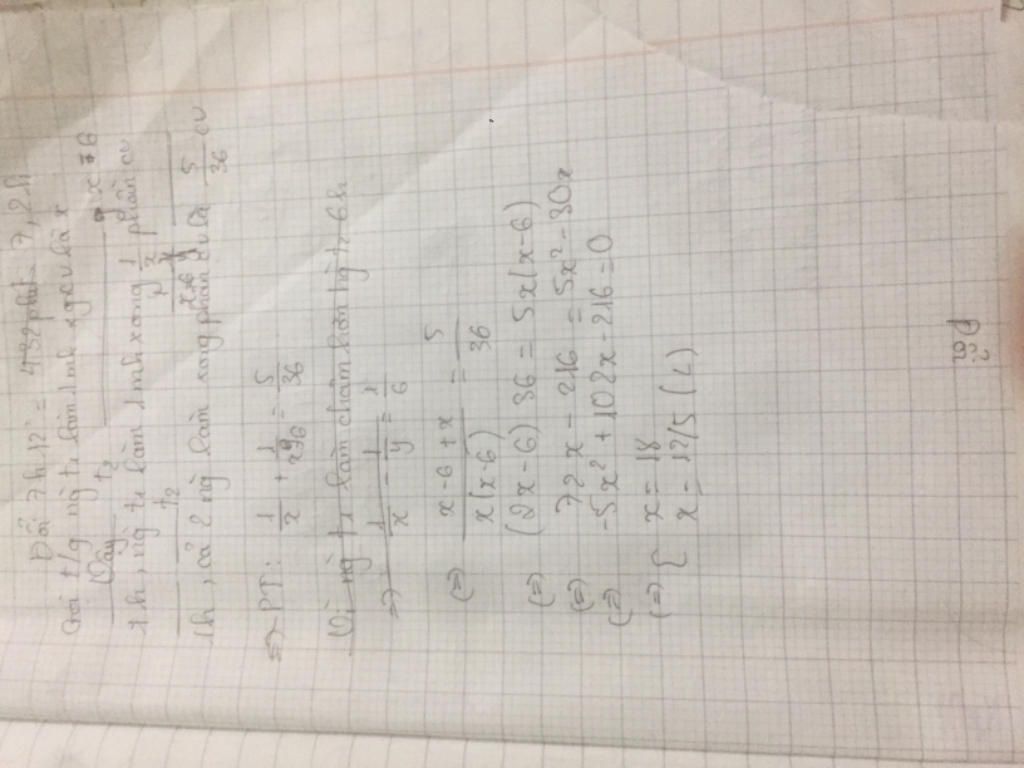 Đổi 7h12' = 432 phút 7,2h
Gọi t/g ng t1 làm 1 mh xg cv là x
t2 x-6
1h, ng t1 làm 1 mh xong 1/x phần cv
t2
1h, cả 2 ng làm xong phần cv là 5/36 cv
=> PT: 1/x + 1/x-6 = 5/36
Vì ng t1 làm chậm hơn ng t2 6h
=> 1/x - 1/y = 1/6
(=) x-6+x / x(x-6) = 5/36
(=) (2x-6)36 = 5x(x-6)
(=) 72x - 216 = 5x² - 30x
(=) -5x² + 102x - 216 = 0
(=) { x = 18
x = 12/5 (L)